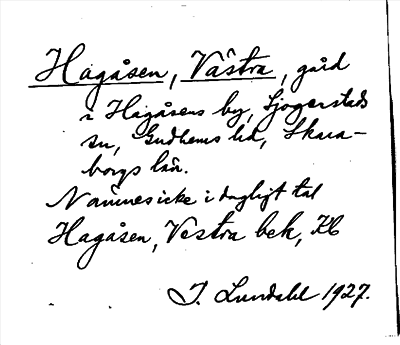 Hagåsen, Västra, gård
i Hagåsens by, Sjogerstads
sn, Gudhems hd, Skara-
borgs län.
Nämnes icke i dagligt tal
Hagåsen, Vestra bek, Kb
I. Lundahl 1927.